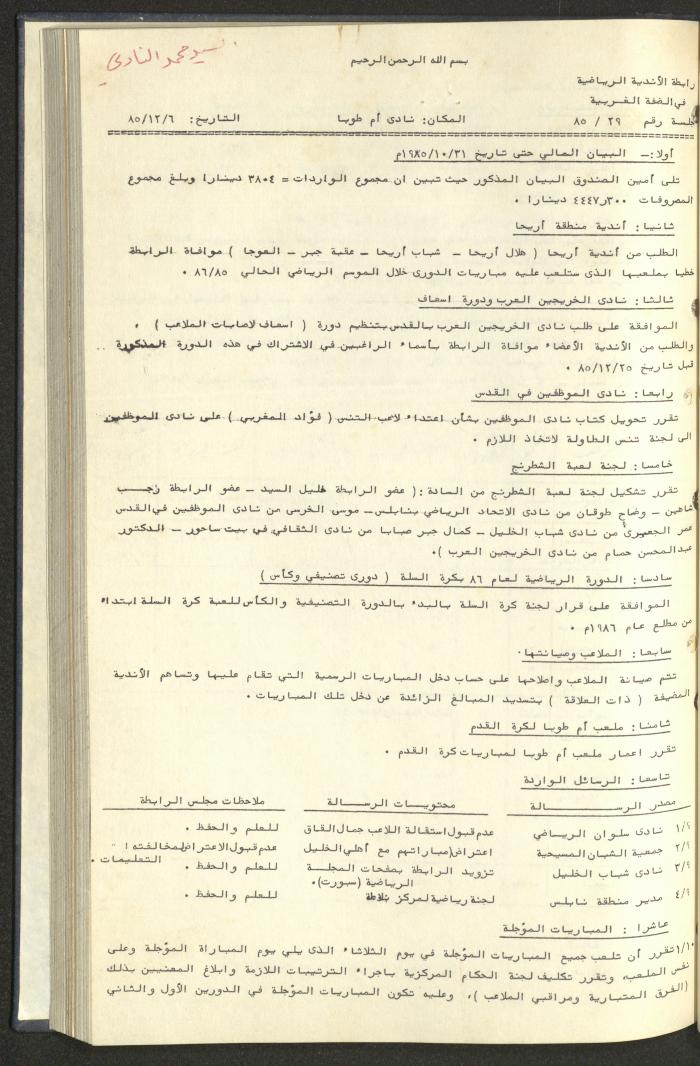 السيد محمد النادي
بسم الله الرحمن الرحيم
رابطة الأندية الرياضية
في الضفة الغربية
جلسة رقم ٢٩ / ٨٥ المكان: نادى أم طوبا التاريخ: ٨٥/١٢/٦
أولا :ـ البيان المالي حتى تاريخ ١٩٨٥/١٠/٣١م
تلى أمين الصندوق البيان المذكور حيث تبين ان مجموع الواردات = ٣٨٠٤ دينارا وبلغ مجموع
المصروفات ٣٠٠ر٤٤٤٧ دينارا ٠
ثانيا : أندية منطقة أريحا
الطلب من أندية أريحا ( هلال أريحا ـ شباب أريحا ـ عقبة جبر ـ العوجا ) موافاة الرابطة
خطيا بملعبها الذى ستلعب عليه مباريات الدورى خلال الموسم الرياضي الحالي ٨٦/٨٥ ٠
ثالثا : نادى الخريجين العرب ودورة اسعاف
الموافقة على طلب نادى الخريجين العرب بالقدس بتنظيم دورة ( اسعاف لاصابات الملاعب ) ،
والطلب من الأندية الأعضاء موافاة الرابطة بأسماء الراغبين في الاشتراك في هذه الدورة المذكورة
قبل تاريخ ٨٥/١٢/٢٥ ٠
رابعا : نادى الموظفين في القدس
تقرر تحويل كتاب نادى الموظفين بشأن اعتداء لاعب التنس ( فؤاد المغربي ) على نادى الموظفين
الى لجنة تنس الطاولة لاتخاذ اللازم ٠
خامسا : لجنة لعبة الشطرنج
تقرر تشكيل لجنة لعبة الشطرنج من السادة :( عضو الرابطة خليل السيد ـ عضو الرابطة رجب
شاهين ـ وضاح طوقان من نادى الاتحاد الرياضي بنابلس ـ موسى الخرسى من نادى الموظفين في القدس
عمر الجعبرى من نادى شباب الخليل ـ كمال جبر صبابا من نادى الثقافي في بيت ساحور ـ الدكتور
عبد المحسن حمام من نادى الخريجين العرب )٠
سادسا : الدورة الرياضية لعام ٨٦ بكرة السلة ( دورى تصنيفي وكأس )
الموافقة على قرار لجنة كرة السلة بالبدء بالدورة التصنيفية والكأس للعبة كرة السلة ابتداء
من مطلع عام ١٩٨٦م ٠
سابعا : الملاعب وصيانتها ٠
تتم صيانة الملاعب واصلاحها على حساب دخل المباريات الرسمية التي تقام عليها وتساهم الأندية
المضيفة ( ذات العلاقة ) بتسديد المبالغ الزائدة عن دخل تلك المباريات ٠
ثامنا : ملعب أم طوبا لكرة القدم
تقرر اعمار ملعب أم طوبا لمباريات كرة القدم ٠
تاسعا : الرسائل الواردة
مصدر الرســـالة محتويـات الرســالة ملاحظات مجلس الرابطة
١/٩ نادى سلوان الرياضي عدم قبول استقالة اللاعب جمال القاق للعلم والحفظ ٠
٢/٩ جمعية الشبان المسيحية اعتراض(مباراتهم مع أهلي الخليل عدم قبول الاعتراض(لمخالفته)
التعليمات ٠
٣/٩ نادى شباب الخليل تزويد الرابطة بصفحات المجلـة للعلم والحفظ ٠
الرياضية (سبورت)٠
٤/٩ مدير منطقة نابلس لجنة رياضية لمركز بلاطة للعلم والحفظ ٠
عاشرا : المباريات المؤجلة
١/١٠ تقرر أن تلعب جميع المباريات المؤجلة في يوم الثلاثاء الذى يلي يوم المباراة المؤجلة وعلى
نفس الملعب، وتقرر تكليف لجنة الحكام المركزية باجراء الترتيبات اللازمة وابلاغ المعنيين بذلك
(الفرق المتبارية ومراقبي الملاعب )، وعليه تكون المباريات المؤجلة في الدورين الأول والثاني